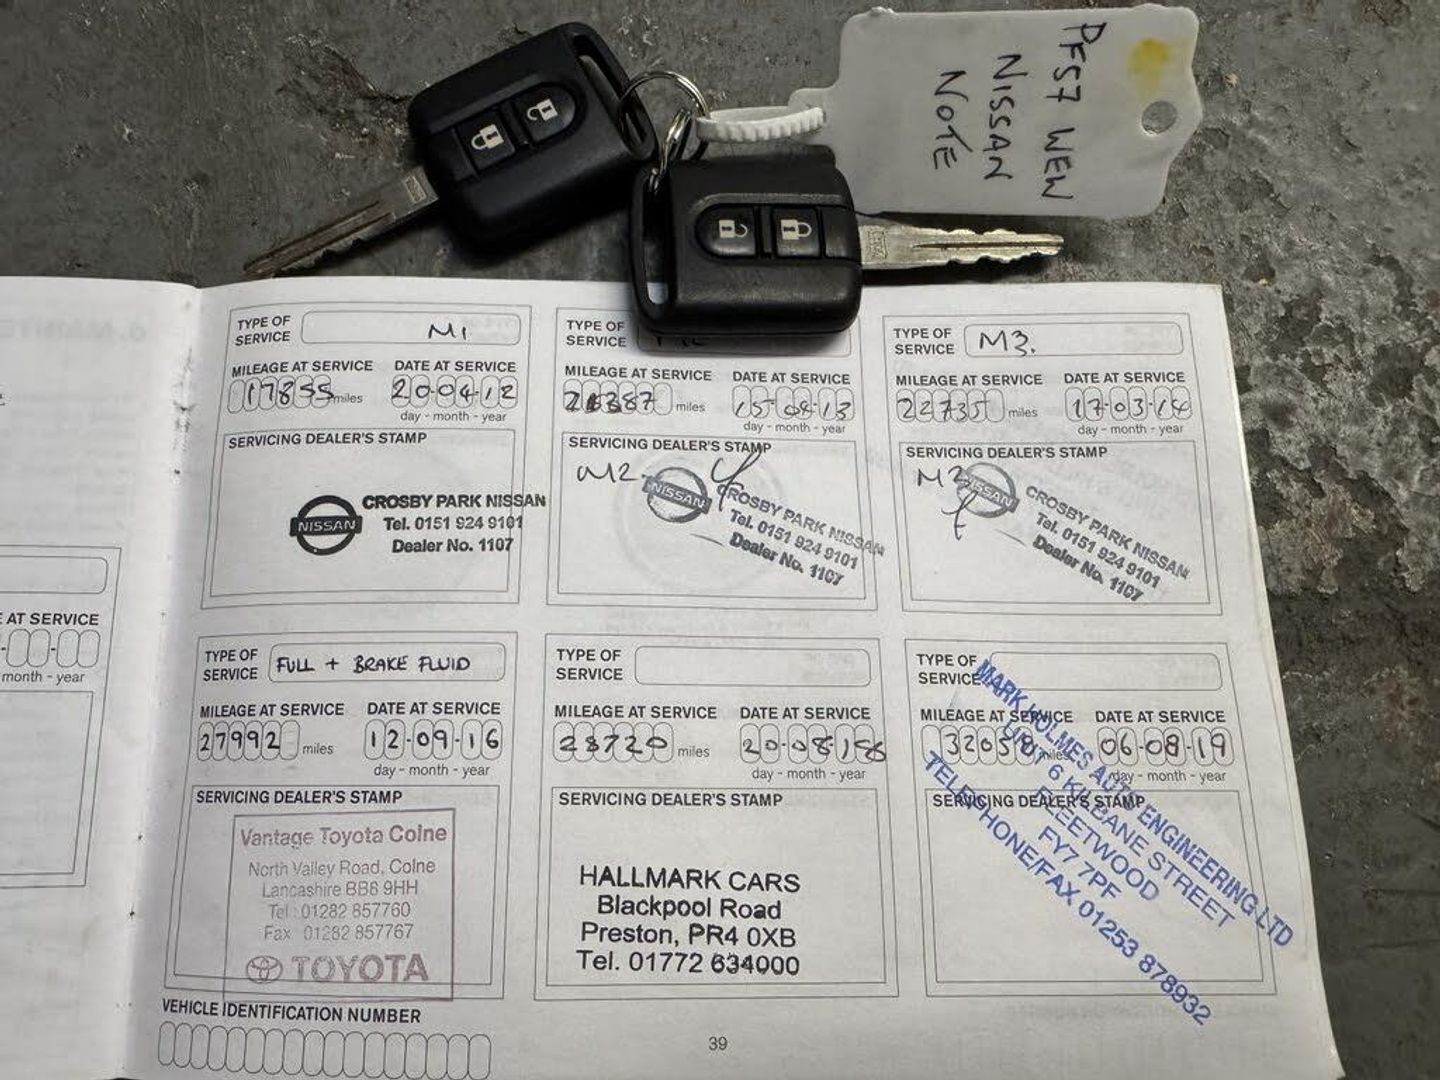 PF57 WEW
NISSAN
NOTE
TYPE OF SERVICE M1
MILEAGE AT SERVICE DATE AT SERVICE
17855 miles 20-04-12
day - month - year
SERVICING DEALER'S STAMP
NISSAN
CROSBY PARK NISSAN
Tel. 0151 924 9101
Dealer No. 1107
TYPE OF SERVICE
MILEAGE AT SERVICE DATE AT SERVICE
21387 miles 15-04-13
day - month - year
SERVICING DEALER'S STAMP
M2
NISSAN
CROSBY PARK NISSAN
Tel. 0151 924 9101
Dealer No. 1107
TYPE OF SERVICE M3.
MILEAGE AT SERVICE DATE AT SERVICE
22735 miles 17-03-14
day - month - year
SERVICING DEALER'S STAMP
M3
NISSAN
CROSBY PARK NISSAN
Tel. 0151 924 9101
Dealer No. 1107
E AT SERVICE
month - year
TYPE OF SERVICE FULL + BRAKE FLUID
MILEAGE AT SERVICE DATE AT SERVICE
27992 miles 12-09-16
day - month - year
SERVICING DEALER'S STAMP
Vantage Toyota Colne
North Valley Road, Colne
Lancashire BB8 9HH
Tel : 01282 857760
Fax : 01282 857767
TOYOTA
TYPE OF SERVICE
MILEAGE AT SERVICE DATE AT SERVICE
28720 miles 20-08-18
day - month - year
SERVICING DEALER'S STAMP
HALLMARK CARS
Blackpool Road
Preston, PR4 0XB
Tel. 01772 634000
TYPE OF SERVICE
MILEAGE AT SERVICE DATE AT SERVICE
32058 miles 06-08-19
day - month - year
SERVICING DEALER'S STAMP
MARK HOLMES AUTO ENGINEERING LTD
UNIT 6 KILBANE STREET
FLEETWOOD
FY7 7PF
TELEPHONE/FAX 01253 878932
VEHICLE IDENTIFICATION NUMBER
39